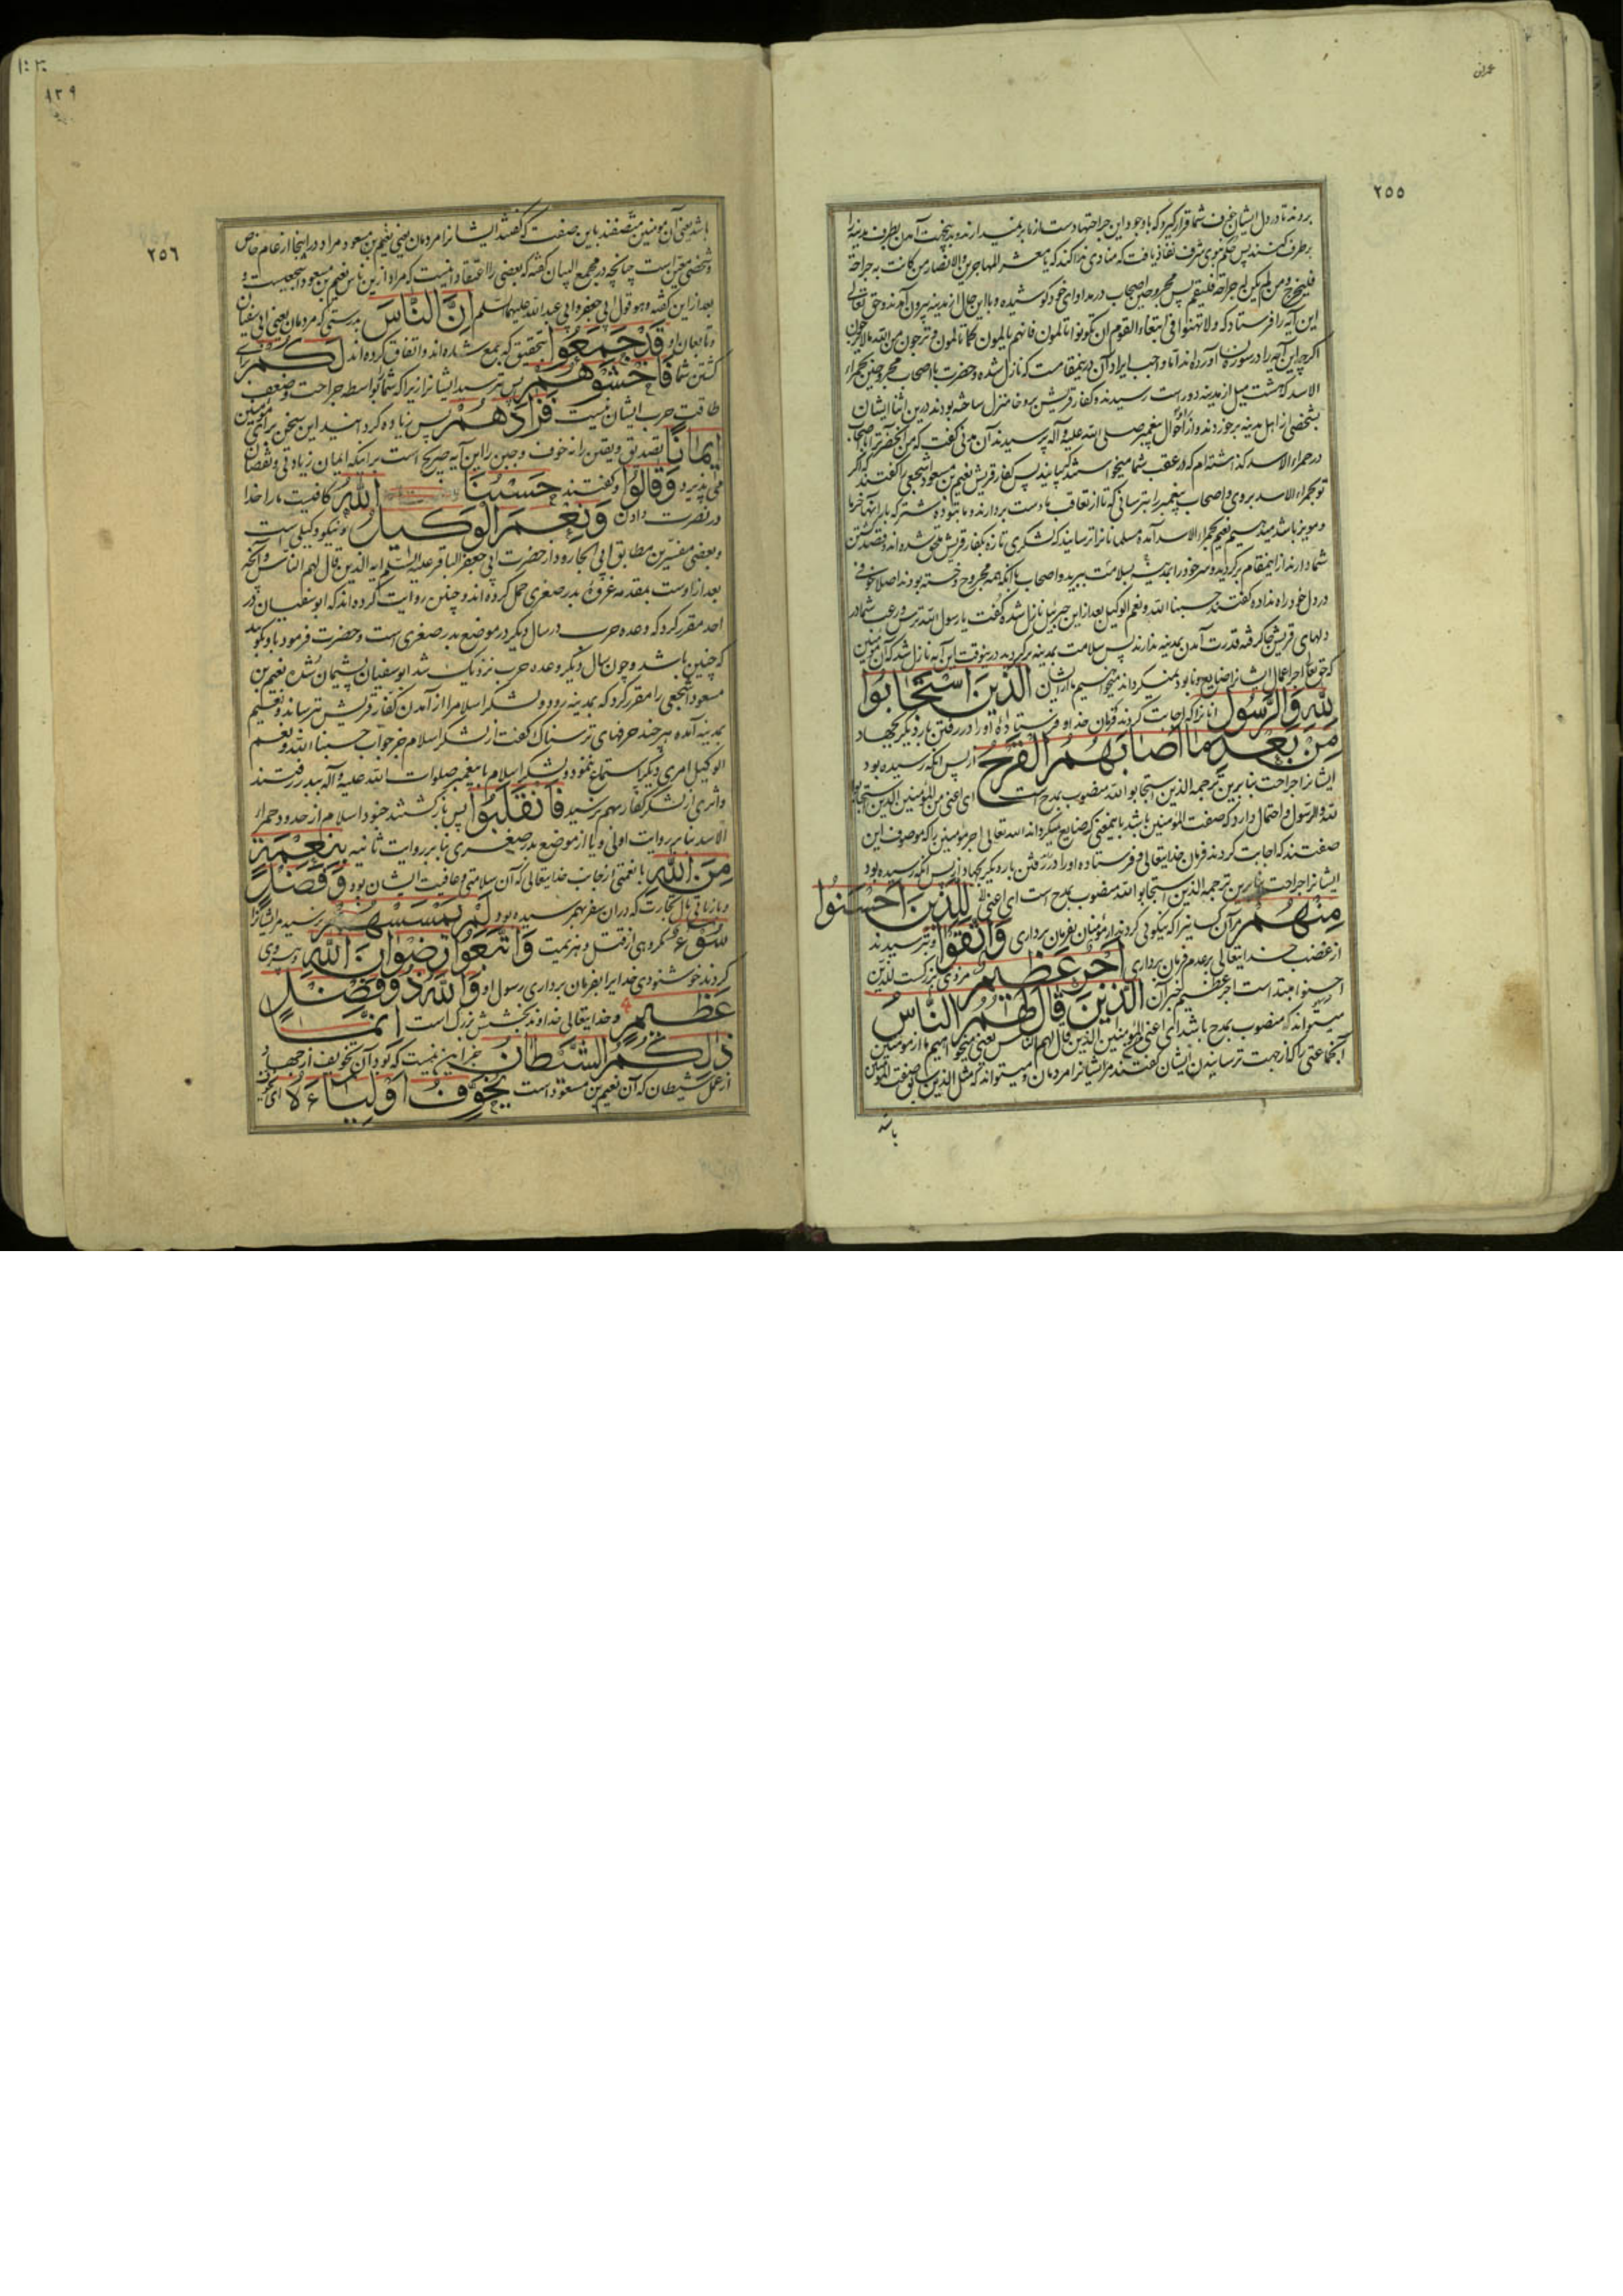 عمران
٢٥٥
بروند تا در دل ایشان خوف شما قرار گیرد که با وجود این جراحتها دست از ما برنمیدارند و بدینجهت آمدن بطرف مدینه را
برطرف کنند پس حکم نبوی شرف نفاذ یافت که منادی ندا کند که یا معشر المهاجرین والانصار من کانت به جراحة
فلیخرج ومن لم یکن به جراحة فلیقم پس مجروحین اصحاب در مداوای خود کوشیده و با این حال از مدینه بیرون آمدند و حق تعالی
این آیه را فرستاد که ولا تهنوا فی ابتغاء القوم ان تکونوا تالمون فانهم یالمون کما تالمون وترجون من الله ما لا یرجون
اگرچه این آیه را در سوره نسا آورده‌اند اما واجب ایراد آن درینمقامست که نازل شده و حضرت با اصحاب مجروحین بحمراء
الاسد که هشت میل از مدینه دور است رسیدند و کفار قریش بروحا منزل ساخته بودند درین اثنا ایشان
بشخصی از اهل مدینه برخوردند و از احوال پیغمبر صلی الله علیه وآله پرسیدند آن مدنی گفت که من آنحضرت را با اصحاب
در حمراء الاسد گذاشته‌ام که در عقب شما میخواستند که بیایند پس کفار قریش نعیم بن مسعود اشجعی را گفتند که اگر
تو بحمراء الاسد بروی و اصحاب پیغمبر را بترسانی که تا از تعاقب ما دست بردارند و ما بتو ده شتر که بار آنها خرما
و مویز باشد میدهیم نعیم بحمراء الاسد آمده مسلمانانرا ترسانید که لشکری تازه بکفار قریش ملحق شده‌اند و قصد کشتن
شما دارند از اینمقام برگردید و سر خود را بمدینه بسلامت ببرید و اصحاب با آنکه همه مجروح و خسته بودند اصلا خوفی
در دل خود راه نداده گفتند حسبنا الله ونعم الوکیل بعد از این جبرئیل نازل شده گفت یا رسول الله ترس و رعب شما در
دلهای قریش جا گرفته قدرت آمدن بمدینه ندارند پس سلامت بمدینه برگردید درینوقت این آیه نازل شد که آن مؤمنین
که حق تعالی اجر اعمال ایشانرا ضایع و نابود نمیگرداند میخواهیم ما از ایشان الَّذِينَ اسْتَجَابُوا
لِلّٰهِ وَالرَّسُولِ آنانرا که اجابت کردند فرمان خدا و فرستاده او را در رفتن بار دیگر بجهاد
مِنْ بَعْدِ مَا أَصَابَهُمُ الْقَرْحُ از پس آنکه رسیده بود
ایشانرا جراحت بنابرین ترجمه الذین استجابوا لله منصوب بمدح است ای اعنی من المؤمنین الذین استجابوا
لله والرسول و احتمال دارد که صفت المؤمنین باشد باینمعنی که ضایع نمیگرداند الله تعالی اجر مؤمنین را که موصوف باین
صفتند که اجابت کردند فرمان خدایتعالی و فرستاده او را در رفتن بار دیگر بجهاد از پس آنکه رسیده بود
ایشانرا جراحت بنابرین ترجمه الذین استجابوا لله منصوب بمدح است ای اعنی لِلَّذِينَ أَحْسَنُوا
مِنْهُمْ مر آن کسانیرا که نیکوئی کردند از مؤمنان بفرمان برداری وَاتَّقَوْا و ترسیدند
از غضب خدایتعالی بر عدم فرمان برداری أَجْرٌ عَظِيمٌ مزدی بزرگست للذین
احسنوا مبتدا است اجر عظیم خبر آن الَّذِينَ قَالَ لَهُمُ النَّاسُ
میتواند که منصوب بمدح باشد ای اعنی المؤمنین الذین قال لهم الناس یعنی میخواهیم ما از مؤمنین
آنجماعتی را که از جهت ترسانیدن ایشان گفتند مر ایشانرا مردمان و میتواند که مثل الذین سابق صفت المؤمنین
باشد
٨٣٩
٢٥٦
باشد یعنی آن مؤمنین متصفند باین صفت که گفتند ایشانرا مردمان یعنی نعیم بن مسعود مراد در اینجا از عام خاص
و شخص معین است چنانچه در مجمع البیان گفته که بعضی را اعتقاد اینست که مراد ازین ناس نعیم بن مسعود اشجعیست و
بعد از این گفته وهو قول ابی جعفر وابی عبد الله علیهما السلم إِنَّ النَّاسَ بدرستی که مردمان یعنی ابی سفیان
و تابعان او قَدْ جَمَعُوا بتحقیق که جمع شده‌اند و اتفاق کرده‌اند لَكُمْ برای
کشتن شما فَاخْشَوْهُمْ پس بترسید ایشانرا زیرا که شما را بواسطه جراحت و ضعف
طاقت حرب ایشان نیست فَزَادَهُمْ پس زیاده کردانید این سخن برای مؤمنین
إِيمَانًا تصدیق و یقین را نه خوف و جبن را این آیه صریح است بر اینکه ایمان زیادتی و نقصان
می پذیرد وَقَالُوا و گفتند حَسْبُنَا اللّٰهُ کافیست ما را خدا
در نصرت دادن وَنِعْمَ الْوَكِيلُ و نیکو وکیلی است
و بعضی مفسرین مطابق ابی الجارود از حضرت ابی جعفر الباقر علیه السلم آیه الذین قال لهم الناس و آنچه
بعد از اوست بمقدمه غزوه بدر صغری حمل کرده‌اند و چنین روایت کرده‌اند که ابوسفیان در
احد مقرر کرد که وعده حرب در سال دیگر در موضع بدر صغری است و حضرت فرمود باو بگوئید
که چنین باشد و چون سال دیگر وعده حرب نزدیک شد ابوسفیان پشیمان شده نعیم بن
مسعود اشجعی را مقرر کرد که بمدینه رود و لشکر اسلام را از آمدن کفار قریش بترساند و نعیم
بمدینه آمده هر چند حرفهای ترسناک گفت از لشکر اسلام جز جواب حسبنا الله ونعم
الوکیل امری دیگر استماع ننمود و لشکر اسلام با پیغمبر صلوات الله علیه وآله ببدر رفتند
و اثری از لشکر کفار بهم نرسید فَانْقَلَبُوا پس بازگشتند جنود اسلام از حدود حمراء
الاسد بنابر روایت اولی و یا از موضع بدر صغری بنابر روایت ثانیه بِنِعْمَةٍ
مِنَ اللّٰهِ با نعمتی از جانب خدایتعالی که آن سلامتی و عافیت ایشان بود وَفَضْلٍ
و با زیادتی مال تجارت که در آن سفر بهم رسیده بود لَمْ يَمْسَسْهُمْ نرسید مر ایشانرا
سُوءٌ مکروهی از قتل و هزیمت وَاتَّبَعُوا رِضْوَانَ اللّٰهِ و پیروی
کردند خوشنودی خدایرا بفرمان برداری رسول او وَاللّٰهُ ذُو فَضْلٍ
عَظِيمٍ و خدایتعالی خداوند بخشش بزرگ است إِنَّمَا
ذٰلِكُمُ الشَّيْطَانُ جز این نیست که بود آن تخویف از جهاد
از عمل شیطان که آن نعیم بن مسعود است يُخَوِّفُ أَوْلِيَاءَهُ